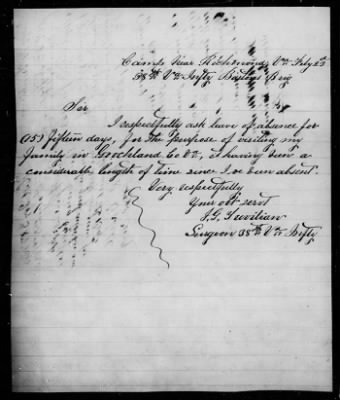 Camp Near Richmond Va Feby 23
38th Va Infty Bartons Brig
Sir
I respectfully ask leave of absence for
(15) fifteen days, for the purpose of visiting my
family in Goochland Co Va, it having been a
considerable length of time since I've been absent.
Very respectfully
Your obt servt
Surgeon 38th Va Infty